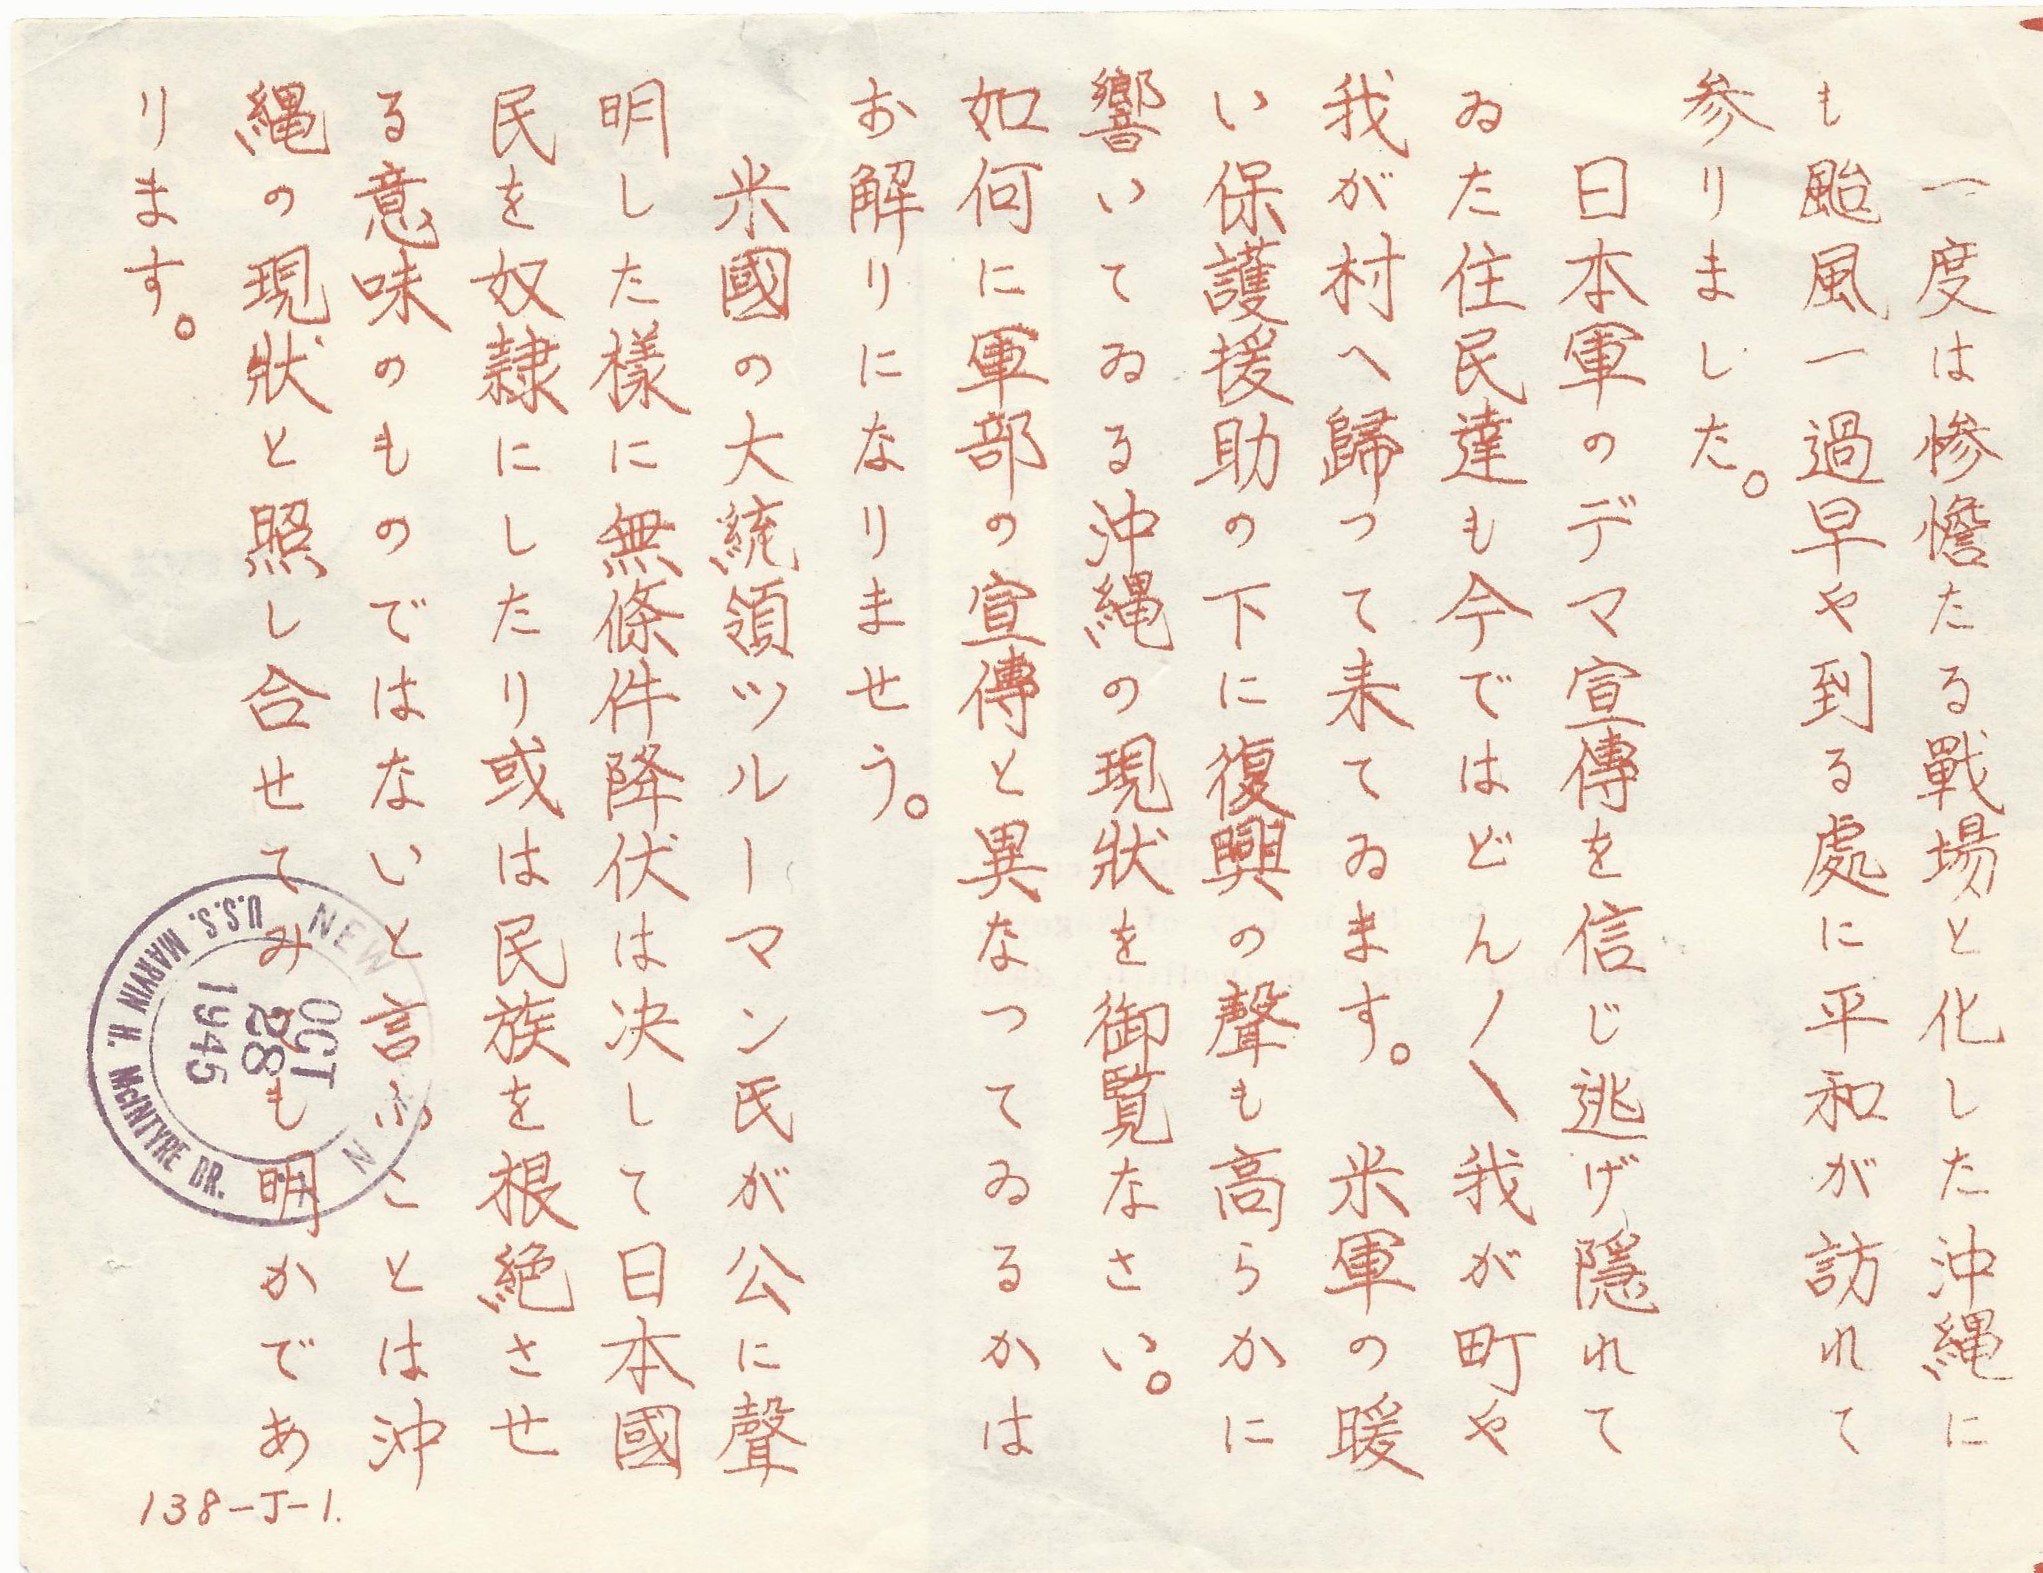 一度は惨憺たる戰場と化した沖縄に
も颱風一過早や到る處に平和が訪れて
参りました。
日本軍のデマ宣傳を信じ逃げ隠れて
ゐた住民達も今ではどん〳〵我が町や
我が村へ歸って来てゐます。　米軍の暖
い保護援助の下に復興の聲も高らかに
響いてゐる沖縄の現狀を御覧なさい。
如何に軍部の宣傳と異なつてゐるかは
お解りになりませう。
米國の大統領ツルーマン氏が公に聲
明した樣に無條件降伏は决して日本國
民を奴隷にしたり或は民族を根絶させ
る意味のものではないと言ふことは沖
縄の現狀と照し合せてみても明かであ
ります。
138-J-1.
NEW
U.S.S. MARVIN H. McINTYRE BR.
OCT
28
1945